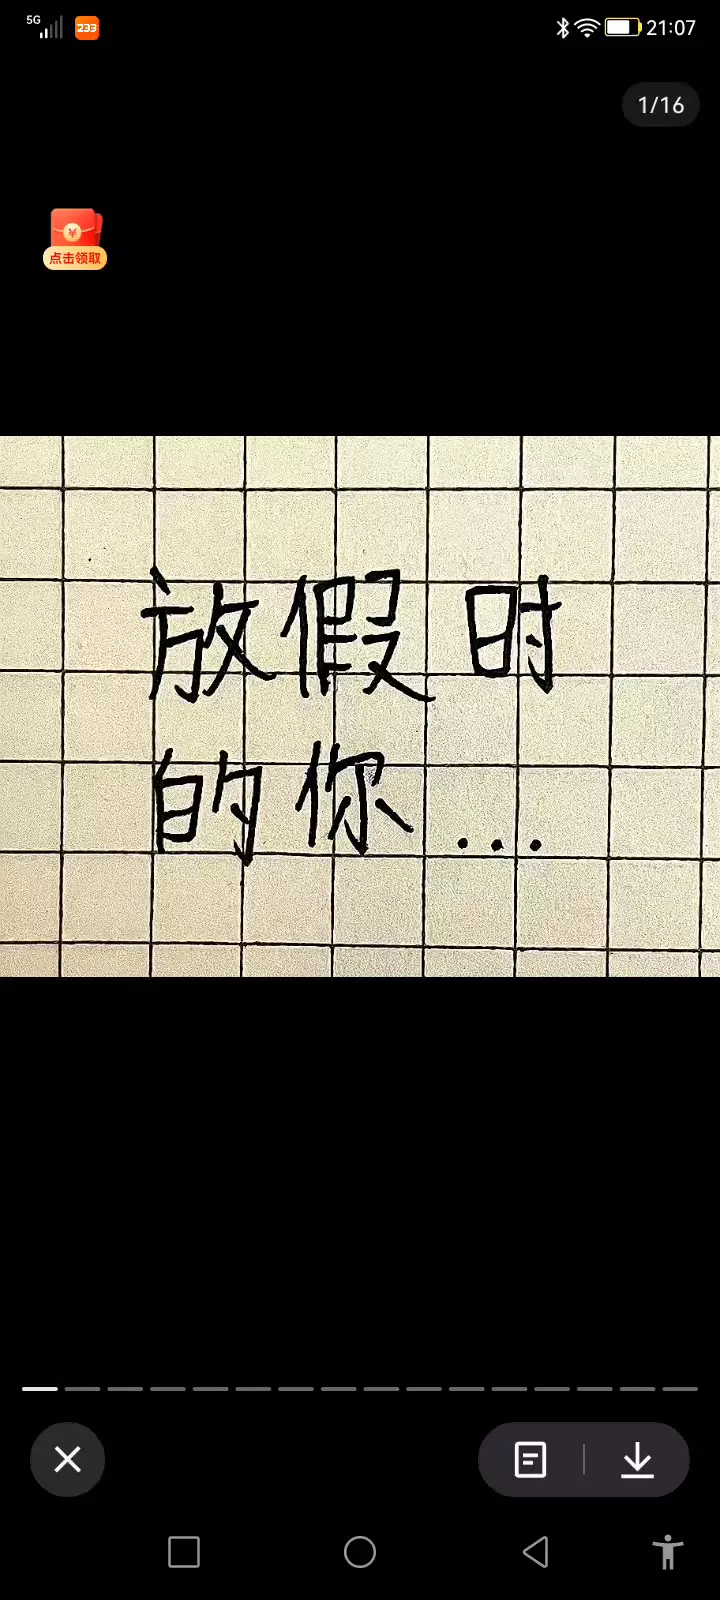 5G
233
21:07
1/16
¥
点击领取
放假时
的你...